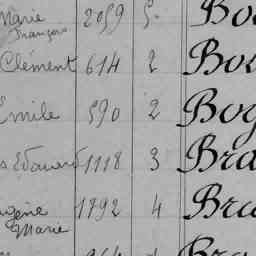 Marie 2059 5 Bo
François
Clément 614 2 Bo
Emile 590 2 Bog
s Edouard 1118 3 Bra
ugène 1792 4 Bra
Marie